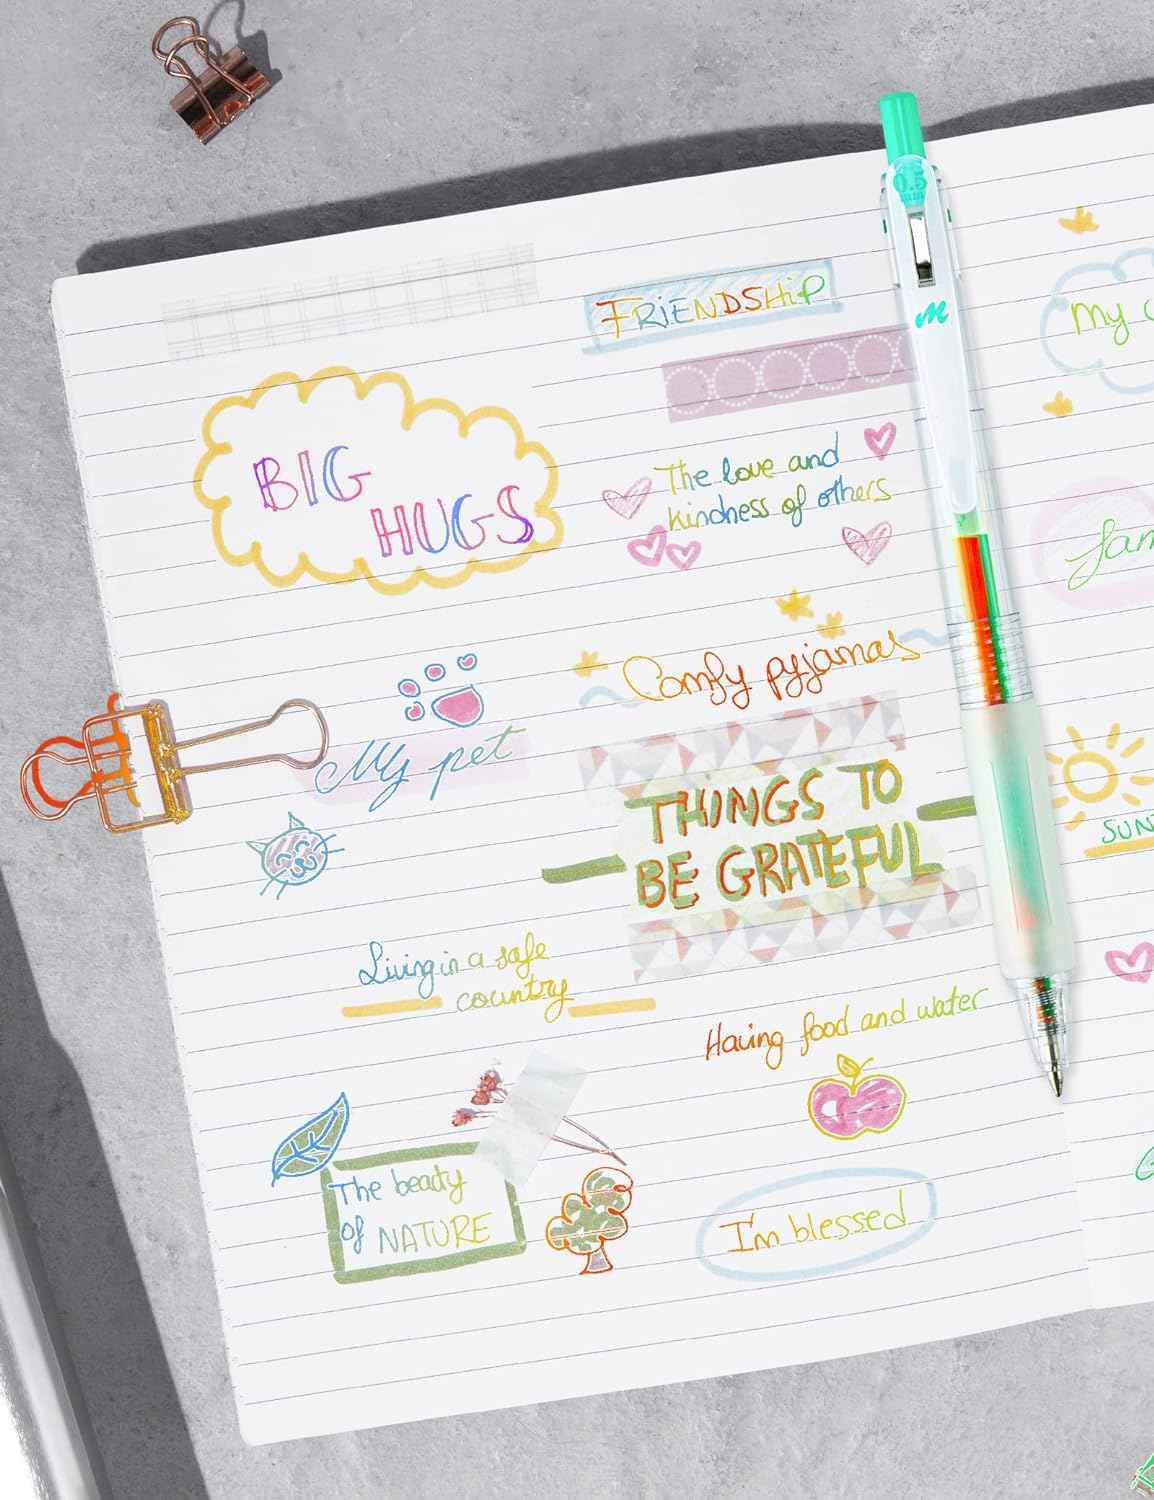 FRIENDSHIP
BIG
HUGS
The love and
kindness of others
Comfy pyjamas
My pet
THINGS TO
BE GRATEFUL
Living in a safe
country
Having food and water
The beauty
of NATURE
I'm blessed
0.5
mm
My